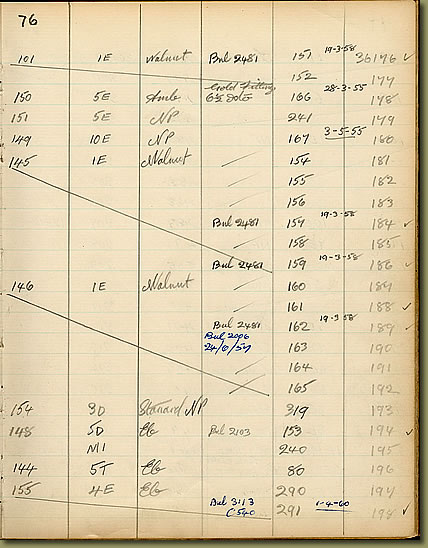 76
101 1E Walnut Bul 2481 151 19-3-58 36176 ✓
152 177
150 5E Amb Gold Fitting 6½ Dots 166 28-3-55 178
151 5E NP 241 179
149 10E NP 167 3-5-55 180
145 1E Walnut 154 181
155 182
156 183
Bul 2481 157 19-3-58 184 ✓
158 185
Bul 2481 159 19-3-58 186 ✓
146 1E Walnut 160 187
161 188 ✓
Bul 2481 162 19-3-58 189 ✓
Bul 2096
24/6/57 163 190
164 191
165 192
154 3D NP 319 193
148 5D Eb Bul 2103 153 194 ✓
M1 240 195
144 5T Eb 80 196
155 4E Eb 290 197
Bul 3113
C540 291 1-4-60 198 ✓